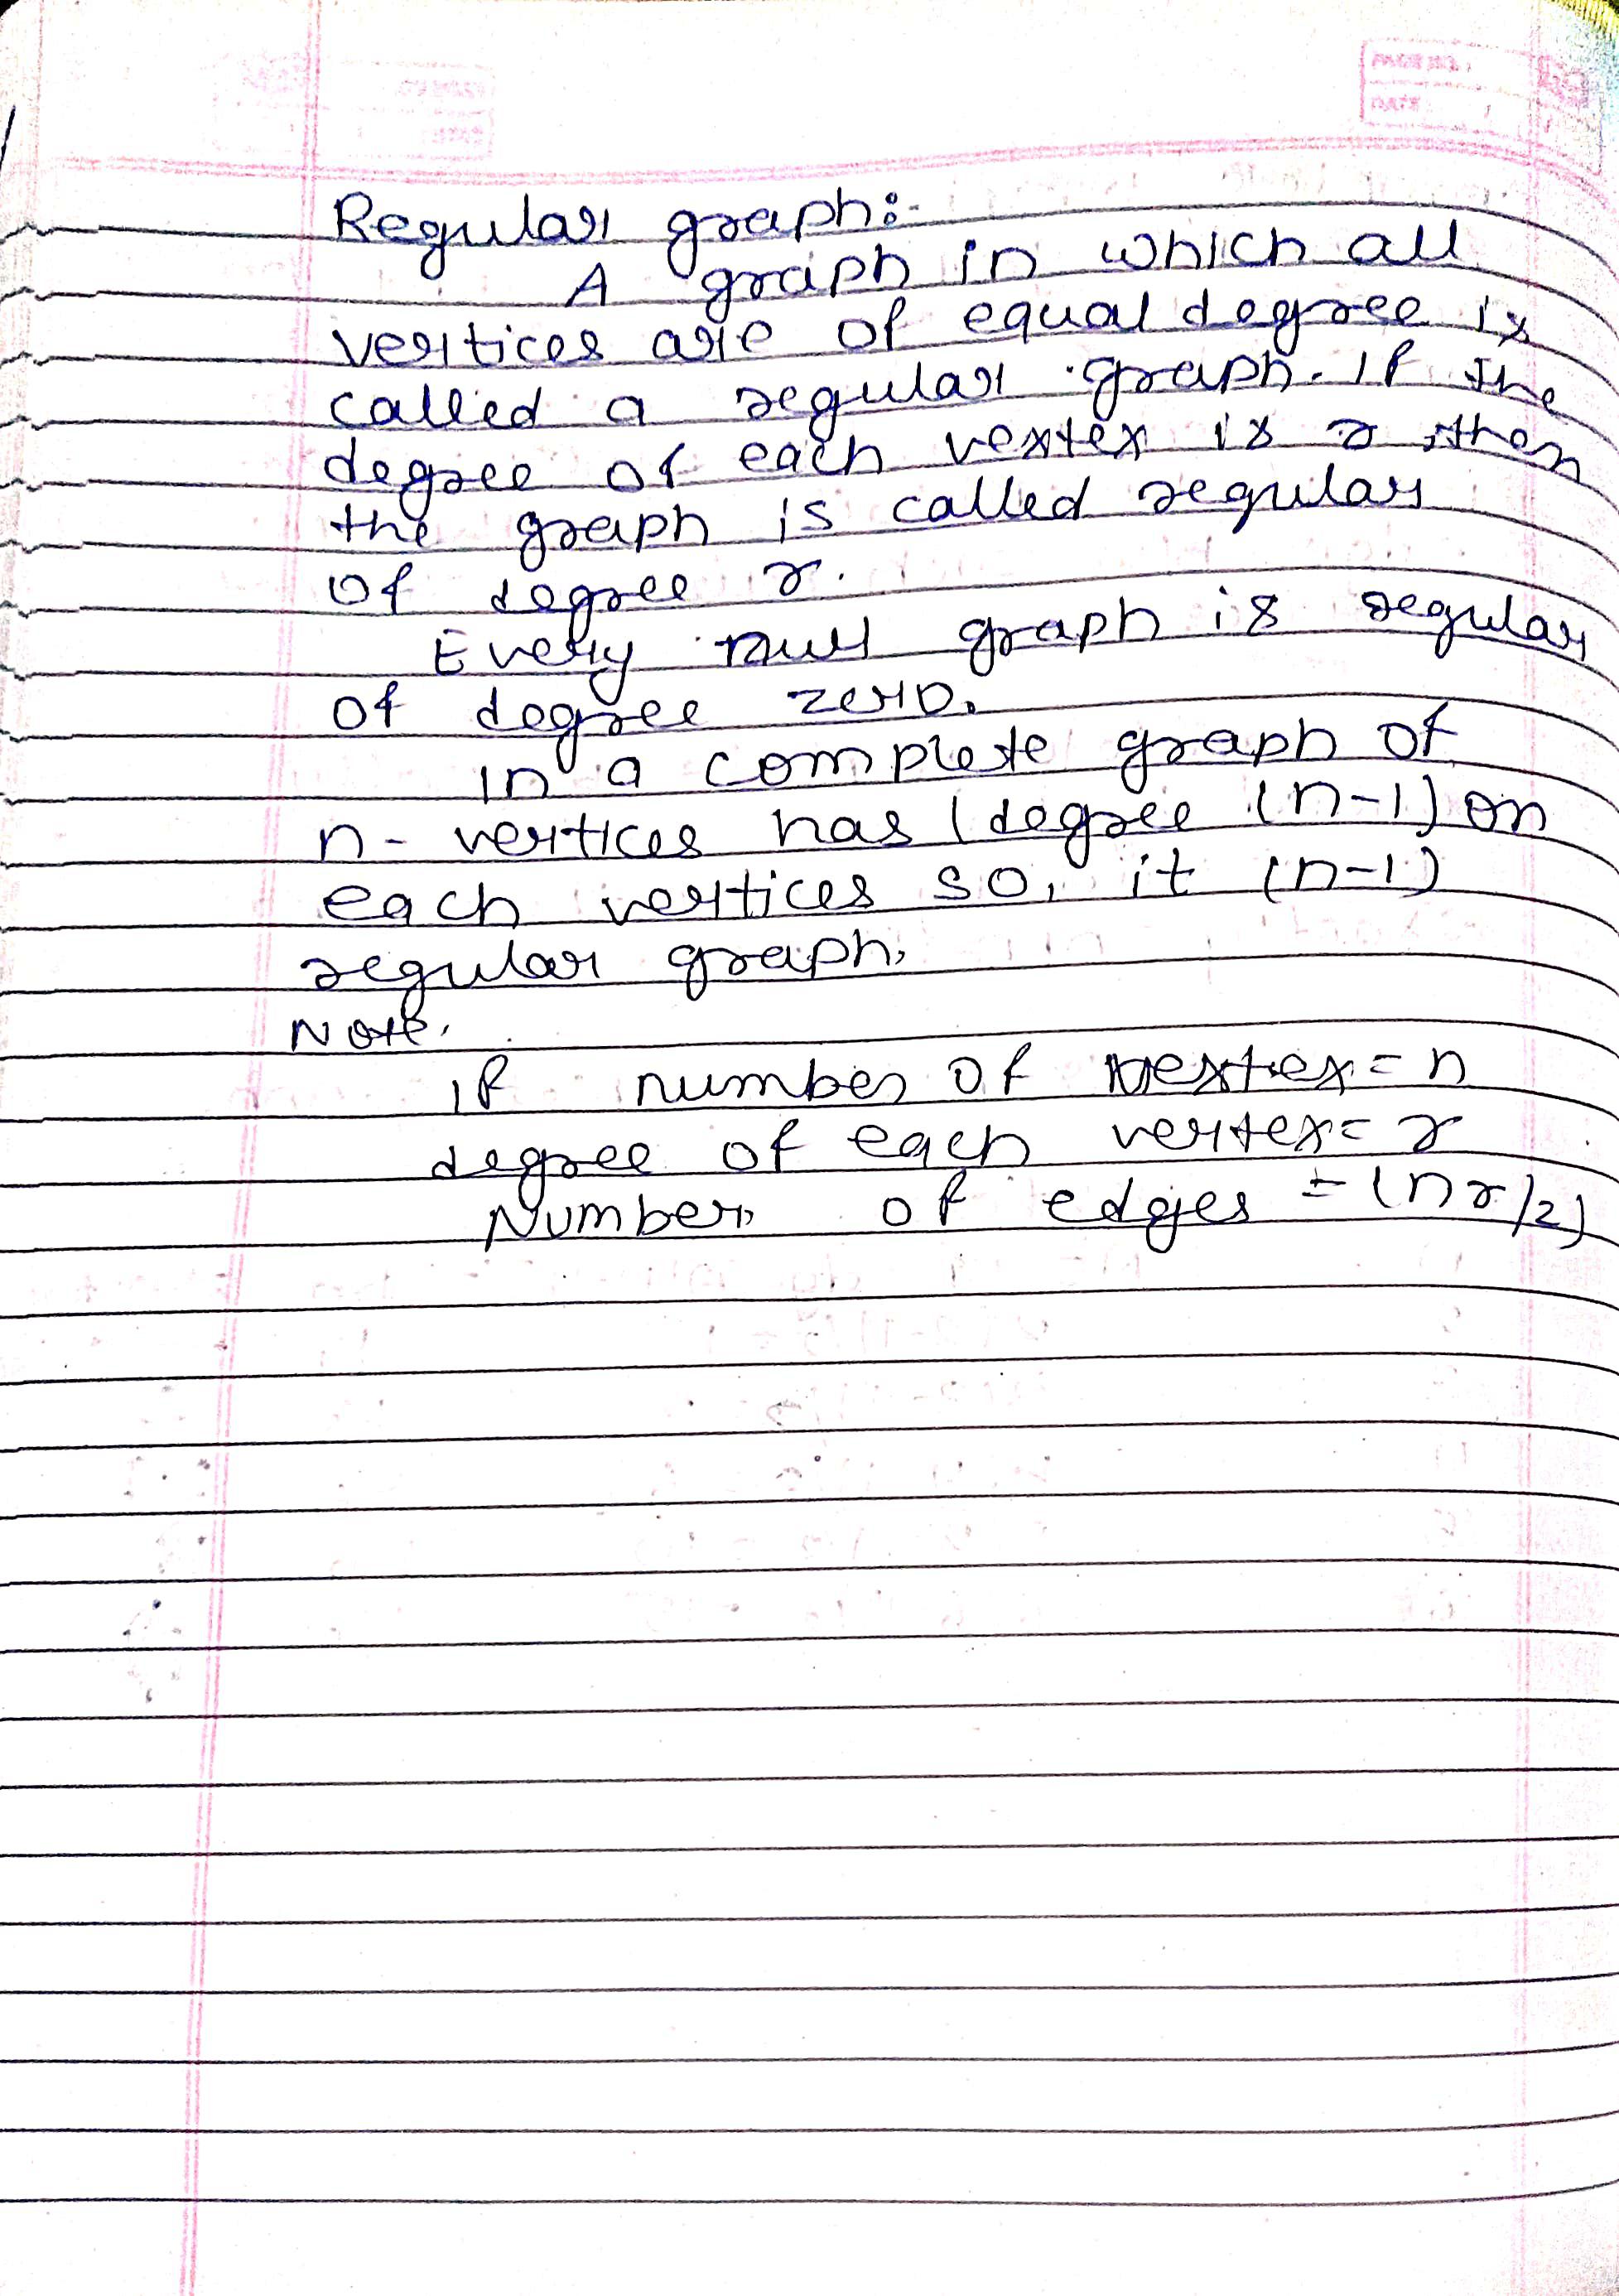 Regular graph:-
A graph in which all
vertices are of equal degree is
called a regular graph. If the
degree of each vertex is r then
the graph is called regular
of degree r.
Every null graph is regular
of degree zero.
In a complete graph of
n- vertices has (degree (n-1) on
each vertices so, it (n-1)
regular graph.
Note.
If number of vertex = n
degree of each vertex = r
Number of edges = (nr/2)